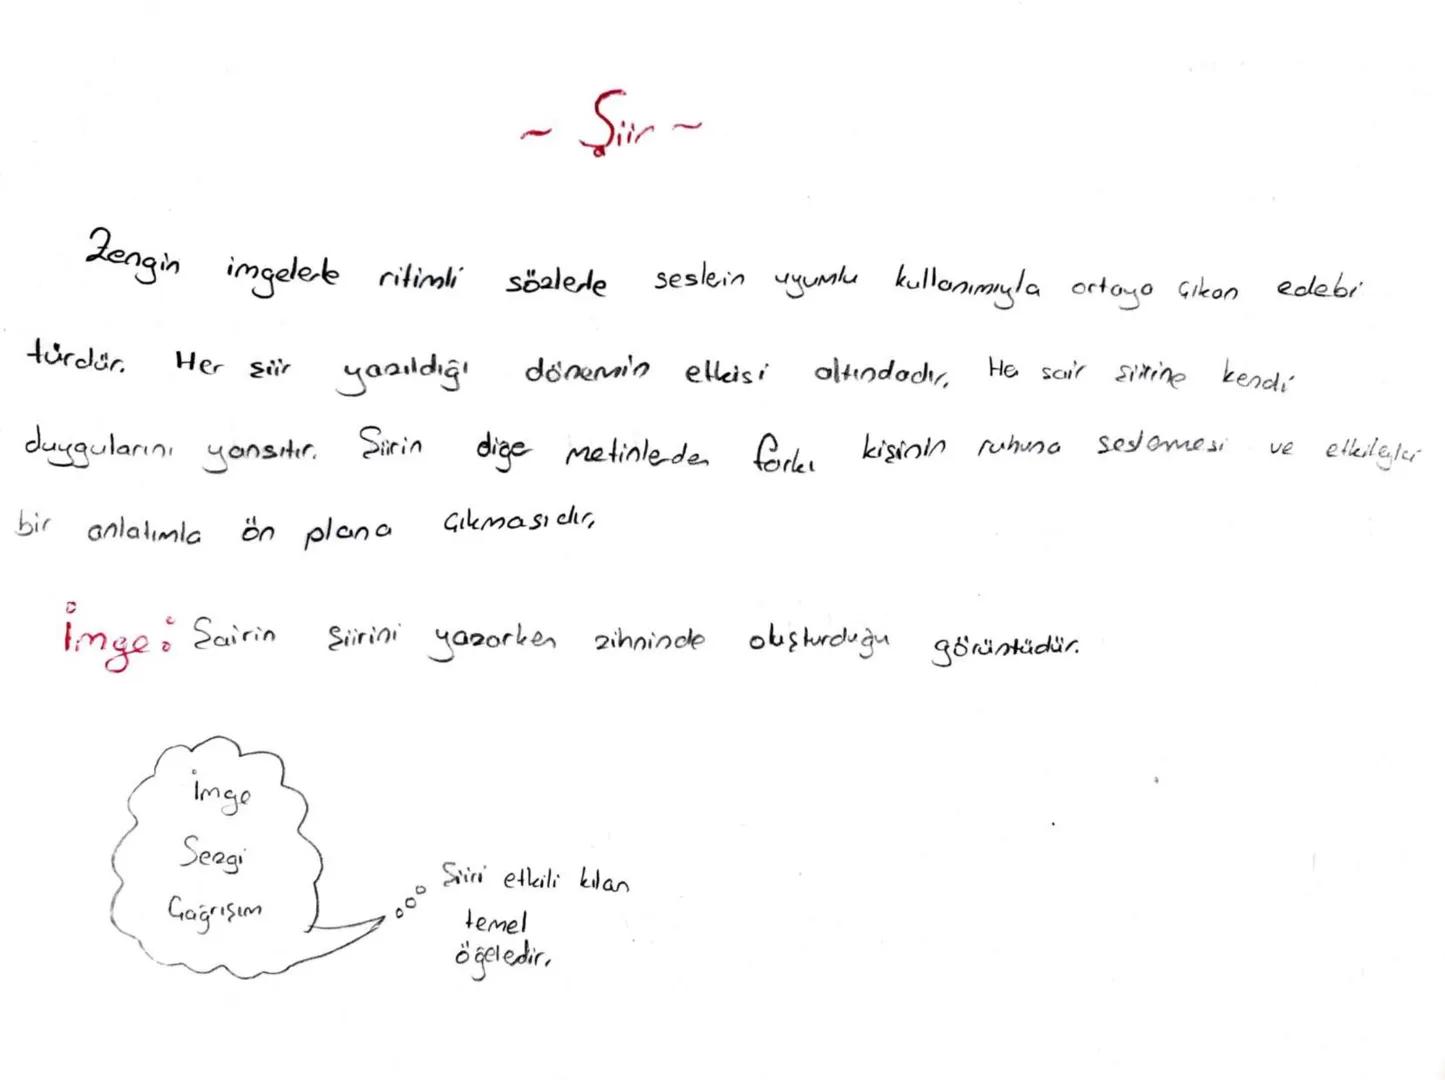 ~ Şiir ~
Zengin imgelerle ritimli sözlerle seslein uyumlu kullanımıyla ortaya çıkan edebi
türdür. Her şiir yazıldığı dönemin etkisi altındadır. He şair şiirine kendi
duygularını yansıtır. Şiirin diğe metinleden farkı kişinin ruhuna seslemesi ve etkileyici
bir anlatımla ön plana çıkmasıdır.
İmge: Şairin şiirini yazarken zihninde oluşturduğu görüntüdür.
İmge
Sezgi
Çağrışım
Şiiri etkili kılan
temel
öğeledir.